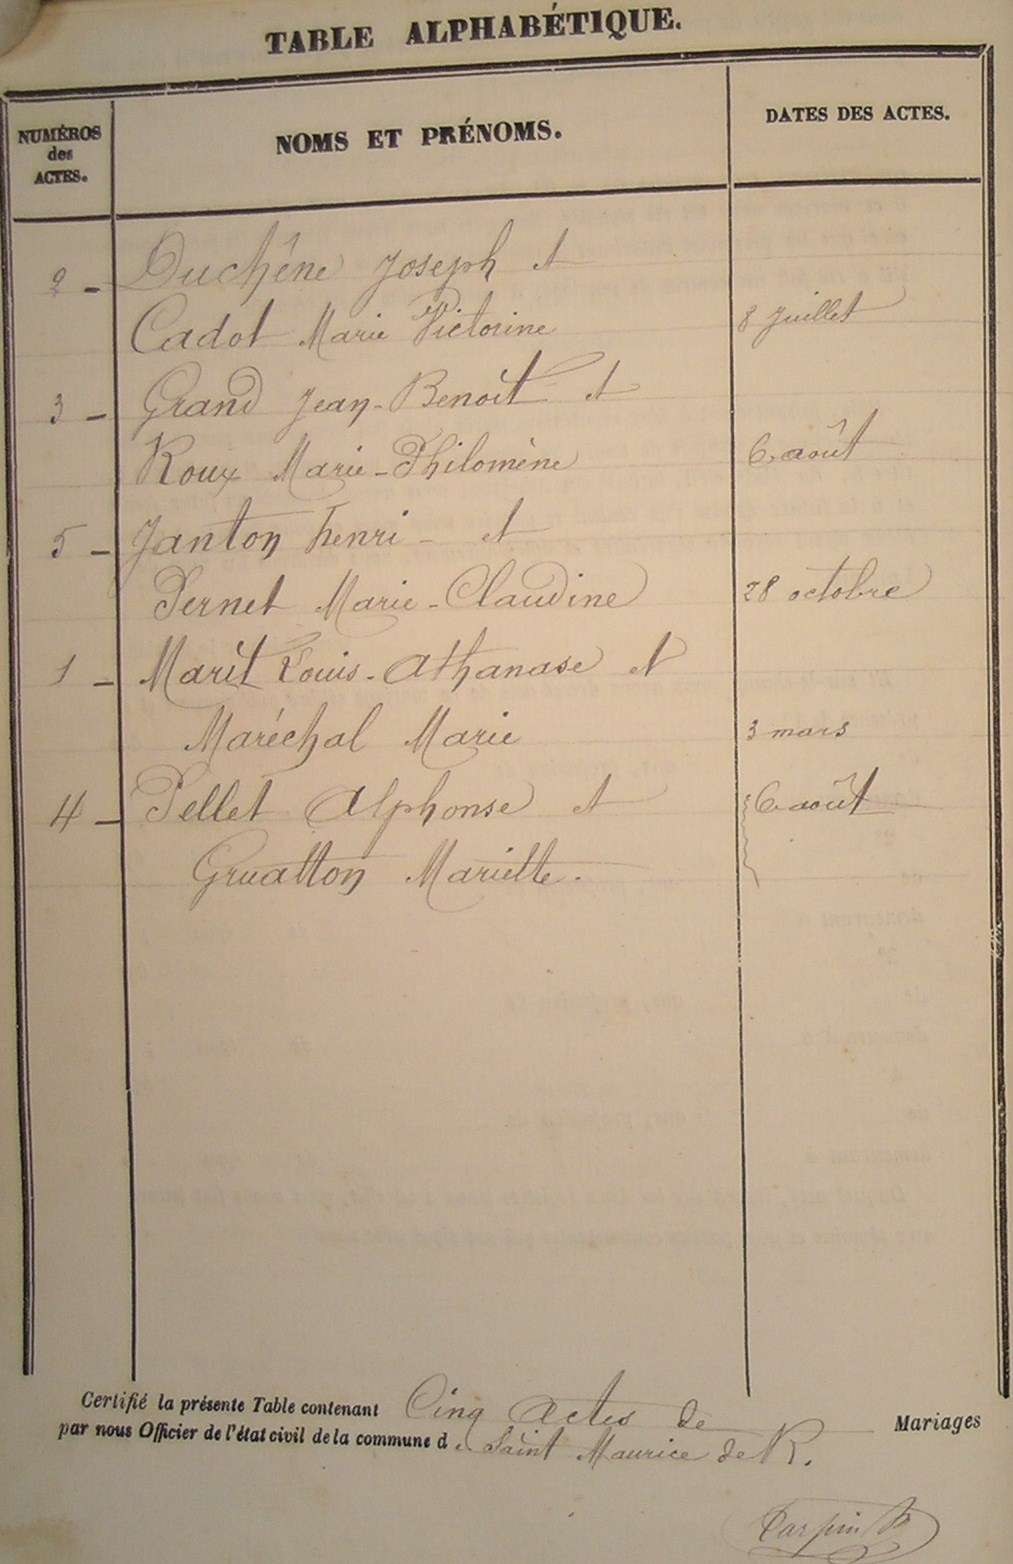 TABLE ALPHABÉTIQUE.
NUMÉROS
des
ACTES.
NOMS ET PRÉNOMS.
DATES DES ACTES.
2 - Duchêne Joseph et
Cadot Marie Victorine 8 Juillet
3 - Grand Jean-Benoît et
Roux Marie-Philomène 6 août
5 - Janton henri - et
Pernet Marie-Claudine 28 octobre
1 - Marit Louis-Athanase et
Maréchal Marie 3 mars
4 - Pellet Alphonse et 6 août
Gruatton Mariette.
Certifié la présente Table contenant Cinq actes de Mariages
par nous Officier de l'état civil de la commune de Saint Maurice de R.